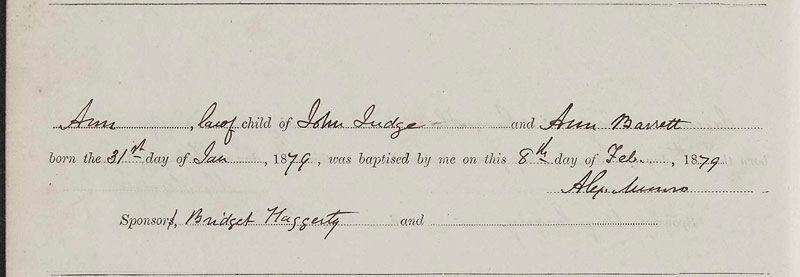 Ann, lawf child of John Judge and Ann Barrett
born the 31st day of Jan, 1879, was baptised by me on this 8th day of Feb., 1879
Alex. Munro
Sponsors, Bridget Haggerty and